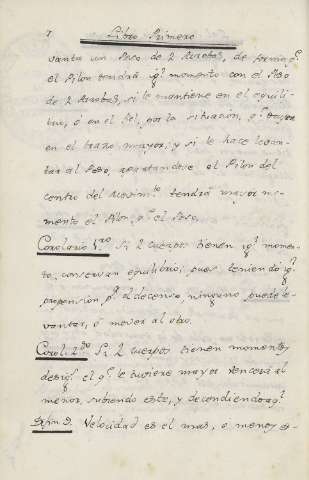 Libro Primero
vanta un Peso de 2 Arrobas, de forma q.^e
el Pilon tendrá ig.^l momento con el Peso
de 2 Arrobas, si le mantiene en el equili-
brio, ó en el fiel, por la situacion, q.^e
en el brazo mayor, y si le hace levan-
tar al Peso, apartandose el Pilon del
centro del movim.^to tendrá mayor mo-
mento el Pilon q.^e el Peso.
Corolario 1.^ro Si 2 cuerpos tienen ig.^l momen-
to, conservan equilibrio; pues teniendo ig.^l
propension p.^a el decenso, ninguno puede le-
vantar, ó mover al otro.
Corol. 2.^do Si 2 cuerpos tienen momentos
desig.^s el q.^e le tuviere mayor vencerá al
menor, subiendo este, y decendiendo aq.^l
Velocidad es el mas, o menos es-